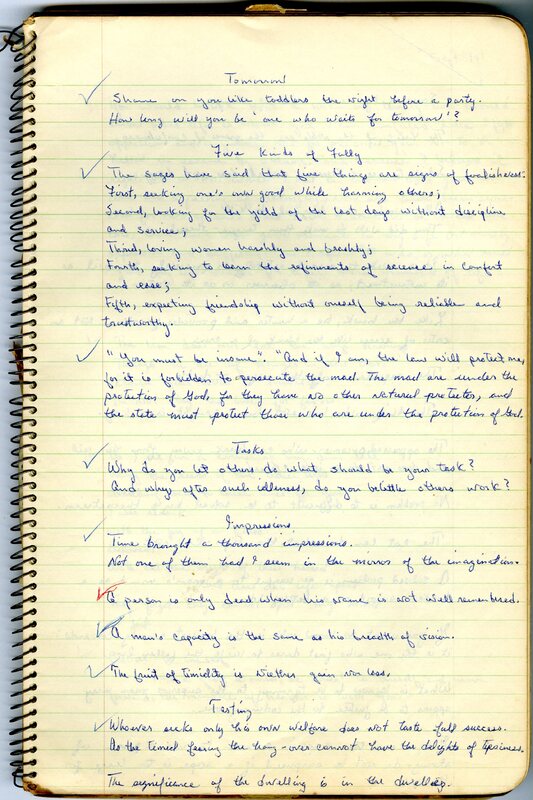 Tomorrow
Shame on you like toddlers the night before a party.
How long will you be 'one who waits for tomorrow'?
Five Kinds of Folly
The sages have said that five things are signs of foolishness:
First, seeking one's own good while harming others;
Second, looking for the yield of the last days without discipline
and service;
Third, loving women harshly and brashly;
Fourth, seeking to learn the refinements of science in comfort
and ease;
Fifth, expecting friendship without oneself being reliable and
trustworthy.
"You must be insane". "And if I am, the law will protect me,
for it is forbidden to persecute the mad. The mad are under the
protection of God, for they have no other natural protector, and
the state must protect those who are under the protection of God.
Tasks
Why do you let others do what should be your task?
And why, after such idleness, do you belittle others work?
Impressions
Time brought a thousand impressions.
Not one of them had I seen in the mirror of the imagination.
A person is only dead when his name is not well remembered.
A man's capacity is the same as his breadth of vision.
The fruit of timidity is neither gain nor loss.
Testing
Whoever seeks only his own welfare does not taste full success.
As the timid fearing the hang-over cannot have the delights of tipsiness.
The significance of the dwelling is in the dweller.